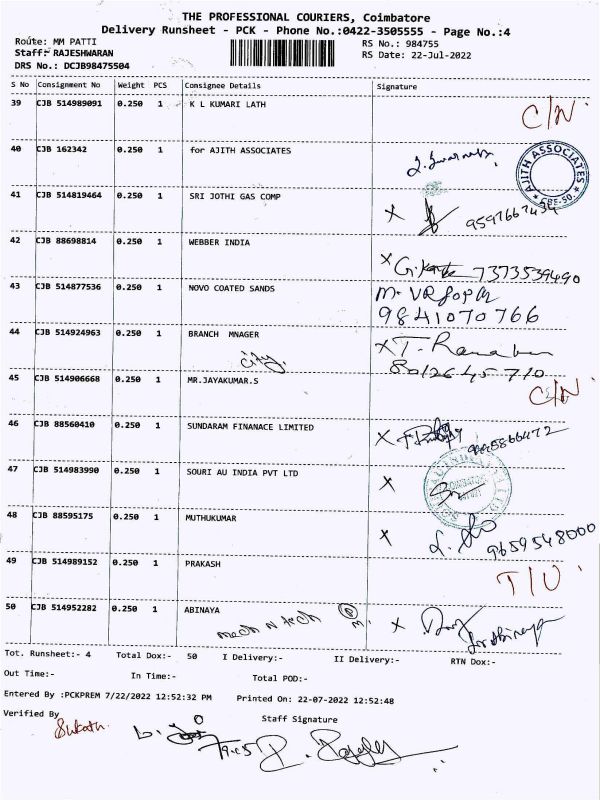 THE PROFESSIONAL COURIERS, Coimbatore
Delivery Runsheet - PCK - Phone No.:0422-3505555 - Page No.:4
Route: MM PATTI
RS No.: 984755
Staff:- RAJESHWARAN
RS Date: 22-Jul-2022
DRS No.: DCJB98475504
S No Consignment No Weight PCS Consignee Details Signature
39 CJB 514989091 0.250 1 K L KUMARI LATH C/N
40 CJB 162342 0.250 1 for AJITH ASSOCIATES
AJITH ASSOCIATES
41 CJB 514819464 0.250 1 SRI JOTHI GAS COMP
X
42 CJB 88698814 0.250 1 WEBBER INDIA
X 7373539490
43 CJB 514877536 0.250 1 NOVO COATED SANDS
9841070766
44 CJB 514924963 0.250 1 BRANCH MNAGER
city. X
8012645710
45 CJB 514906668 0.250 1 MR.JAYAKUMAR.S C/N
46 CJB 88560410 0.250 1 SUNDARAM FINANACE LIMITED
X
47 CJB 514983990 0.250 1 SOURI AU INDIA PVT LTD
X
48 CJB 88595175 0.250 1 MUTHUKUMAR
X 9659548000
49 CJB 514989152 0.250 1 PRAKASH T/U
50 CJB 514952282 0.250 1 ABINAYA
mech N tech X
Tot. Runsheet:- 4 Total Dox:- 50 I Delivery:- II Delivery:- RTN Dox:-
Out Time:- In Time:- Total POD:-
Entered By :PCKPREM 7/22/2022 12:52:32 PM Printed On: 22-07-2022 12:52:48
Verified By Staff Signature